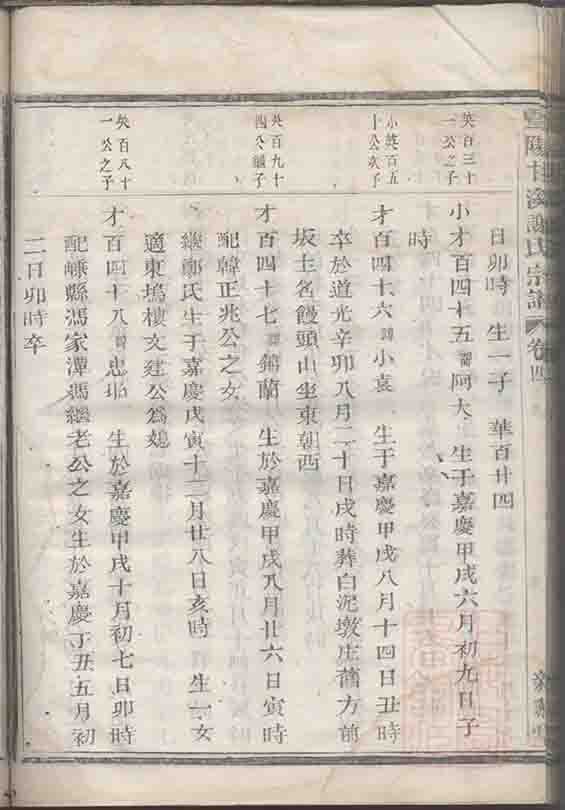 暨陽甘溪謝氏宗譜 卷四
日卯時 生一子 華百廿四
英百三十
一公之子
小才百四十五 諱阿大 生于嘉慶甲戌六月初九日子
時
小英百五
十公次子
才百四十六 諱小袁 生于嘉慶甲戌八月十四日丑時
卒於道光辛卯八月二十日戌時葬白泥墩庄舊方前
坂土名饅頭山坐東朝西
英百九十
四公繼子
才百四十七 諱錦蘭 生於嘉慶甲戌八月廿六日寅時
配韓正兆公之女
繼郭氏生于嘉慶戊寅十二月廿八日亥時 生一女
適東塢樓文建公爲媳
英百八十
一公之子
才百四十八 諱忠 生於嘉慶甲戌十月初七日卯時
配嵊縣馮家潭馮繼老公之女生於嘉慶丁丑五月初
二日卯時卒